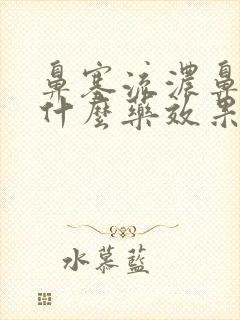 鼻塞流濃鼻
什麼藥效果
水慕藍